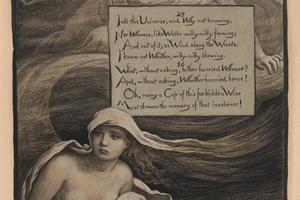 29
Into this Universe, and Why not knowing,
Nor Whence, like Water willy-nilly flowing;
And out of it, as Wind along the Waste,
I know not Whither, willy-nilly blowing.
30
What, without asking, hither hurried Whence?
And, without asking, Whither hurried hence!
Oh, many a Cup of this forbidden Wine
Must drown the memory of that insolence!